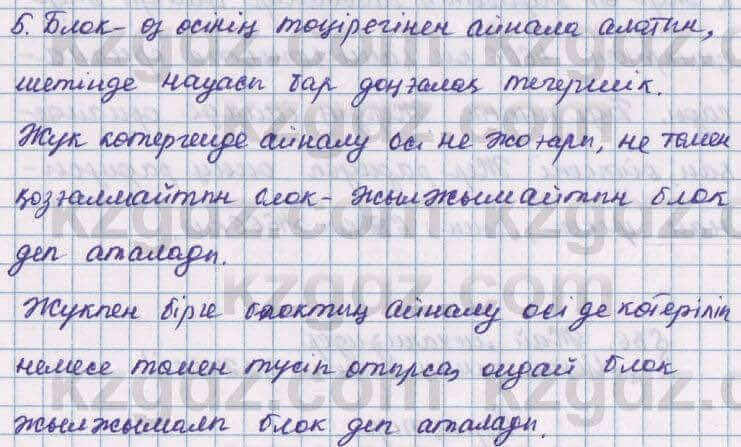 5. Блок- өз осінің төңірегінен айнала алатын,
шетінде науасы бар доңғалақ тегершік.
Жүк көтергенде айналу осі не жоғары, не төмен
қозғалмайтын блок- жылжымайтын блок
деп аталады.
Жүкпен бірге блоктың айналу осі де көтеріліп
немесе төмен түсіп отырса, ондай блок
жылжымалы блок деп аталады.
kzgdz.com